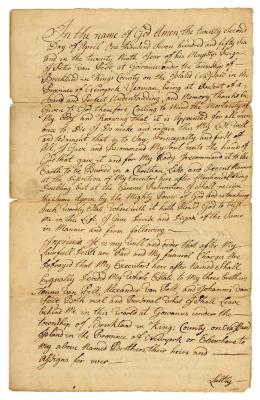 In the name of God Amen the twenty Second
Day of April one thousand Seven hundred and fifty
and in the twenty Ninth year of his Majestys Reign
I Peter Van Pelt at Gowanus in the township of
Brookland in Kings County on the Island of Nassau in the
Province of Newyork Yeoman, being at Present of a
Sound and Perfect Understanding and Memory Thanks be
Given to God therefore Calling to Mind the Mortality of
My Body and Knowing that it is Appointed for all men
once to Die Do make and ordain this My Last Will
and Testament that is to Say Principally and first of
All, I Give and Recommend My Soul into the hands of
God that gave it and for My Body I recommend it to the
Earth to be Buried in a Christian Like and Decent Manner
at the Discretion of My Executors here after Named nothing
Doubting but at the General Resurrection I shall receive
the Same Again by the Mighty Power of God and as touching
Such worldly Estate wherewith it hath Pleased God to bless
Me in this Life. I Give Devise and Dispose of the Same
in Manner and form following
Imprimis It is my will and order that after My
Lawfull Debts are Paid and My funeral Charges are
Defrayed that My Executors here after Named Shall
Equally Devide My Whole Estate to My three brothers
Tunis van Pelt, Alexander van Pelt, and Johannis van
Pelt Both real and Personal what I Shall Leave
behind Me in this World at Gowanus under the
township of Brookland in Kings County on Nassau
Island in the Province of Newyork or Elsewhere to
My above Named Brothers their heirs and
Assigns for ever
Lastly